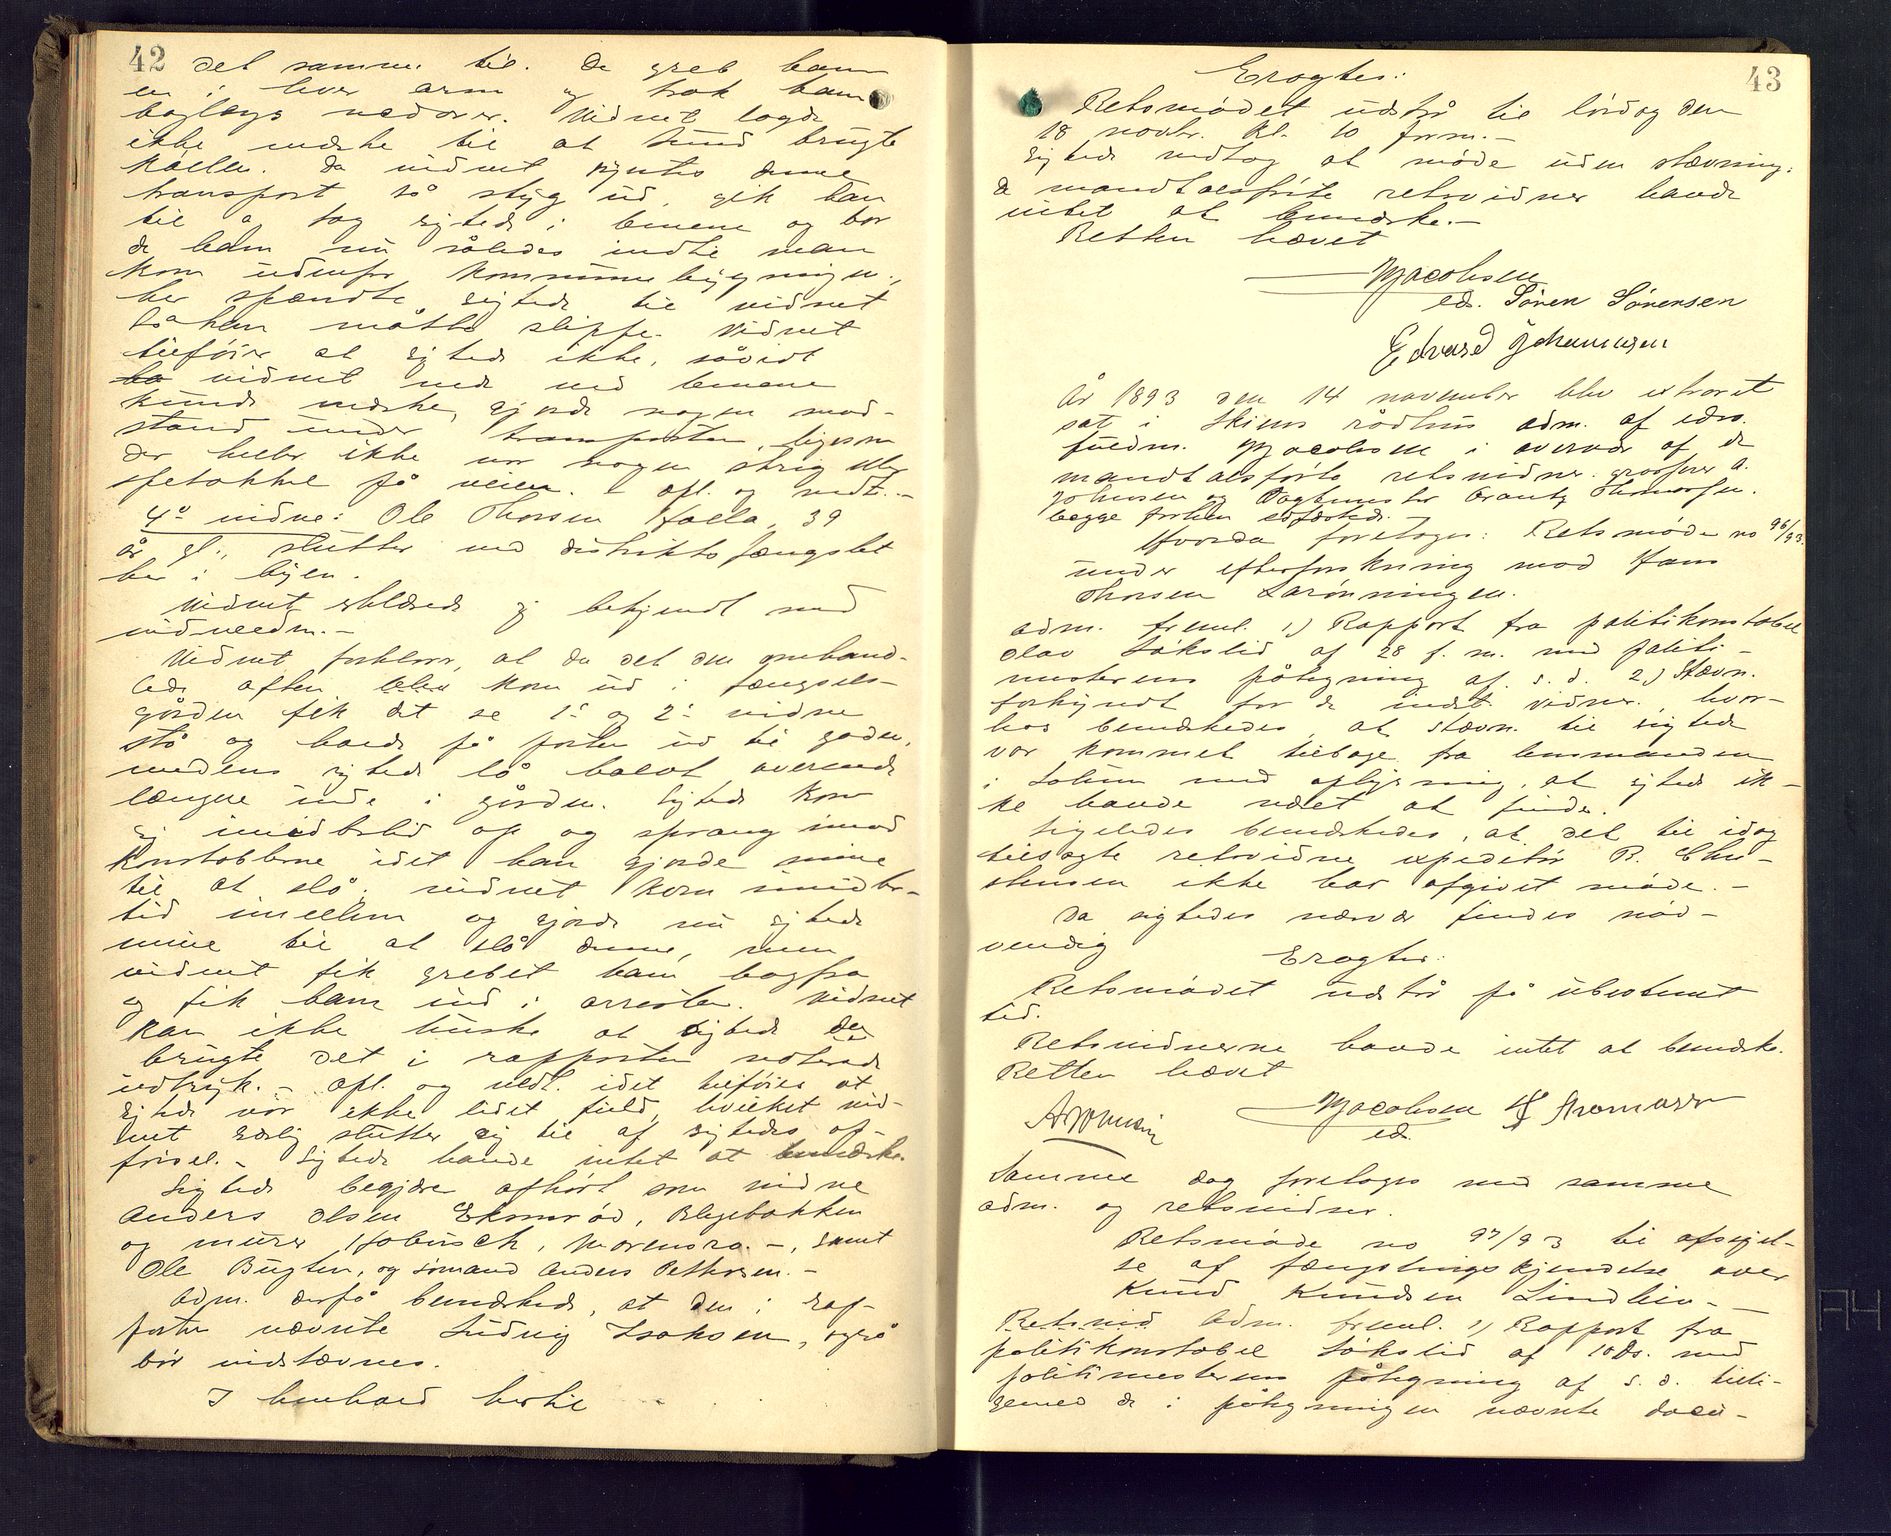 42
det samme til. De greb ham
en i hver arm og trak ham
baglængs nedover. Vidnet lagde
ikke mærke til at Lund brugte
køllen. Da vidnet syntes denne
transport så styg ud, gik han
til å tog sigtede i benene og bar
de ham nu således indtil man
kom udenfor kommunebygningen,
her spændte sigtede til vidnet
så han måtte slippe. Vidnet
tilføier at sigtede ikke, såvidt
vidnet nede ved benene
kunde mærke, gjorde nogen mod-
stand under transporten, ligesom
der heller ikke var nogen skrig eller
spetakkel på veien. - opl. og vedt. -
4º vidne: Ole Thorsen Holla, 39
år gl., slutter ved distriktsfængslet
her i byen.
Vidnet erklærede sig bekjendt med
vidneedn. -
Vidnet forklarer, at da det den omhand-
lede aften kom ud i fængsels-
gården fik det se 1º og 2º vidne
stå og holde på porten ud til gaden,
medens sigtede lå halvt overende
længere inde i gården. Sigtede kom
sig imidlertid op og sprang imod
konstablerne idet han gjorde mine
til at slå; vidnet kom imidler-
tid imellem og gjorde nu sigtede
mine til at slå denne, men
vidnet fik grebet ham bagfra
og fik ham ind i arresten. Vidnet
kan ikke huske at sigtede der
brugte det i rapporten noterede
udtryk. - opl. og vedt. idet tilføies at
sigtede var ikke lidet fuld, hvilket vid-
net særlig slutter sig til af sigtedes op-
førsel. - Sigtede havde intet at bemærke.
Sigtede begjærer afhørt som vidne
Anders Olsen Ekornrød, Blegebakken
og murer Hobusch, - , samt
Ole Bugten, og sømand Anders Pettersen. -
Adm. derpå bemærkede, at den i rap-
porten nævnte Ludvig Isaksen, også
bør indstævnes.
I henhold hertil
43
Eragtes:
Retsmødet udstår til lørdag den
18 novbr. kl. 10 form. -
Sigtede vedtog at møde uden stævning.
De mandtalsførte retsvidner havde
intet at bemærke. -
Retten hævet
Jacobsen
ed. Søren Sørensen
Edvard Johannesen
År 1893 den 14 november blev extraret
sat i Skiens rådhus adm. af edsv.
fuldm. Jacobsen i overvær af de
mandtalsførte retsvidner grosserer A.
Johnsen og Frantz Thomassen.
begge forhen edfæstede.
Hvorda foretoges: Retsmøde no 96/93.
under efterforskning mod Hans
Thorsen Larønningen.
Adm. freml. 1) Rapport fra politikonstabel
Olav Løkslid af 28 f. m. med politi-
mesterens påtegning af s. d. 2) Stævn.
forkyndt for de indst. vidner, hvor-
hos bemærkedes at stævn. til sigtede
var kommet tilbage fra lensmanden
i Solum med oplysning, at sigtede ik-
ke havde været at finde.
Ligeledes bemærkedes, at det til idag
tilsagte retsvidne expeditør R. Chri-
stensen ikke har afgivet møde. -
Da sigtedes nærvær findes nød-
vendig
Eragtes:
Retsmødet udstår på ubestemt
tid.
Retsvidnerne havde intet at bemærke.
Retten hævet
Jacobsen
ed.
Samme dag foretoges med samme
adm. og retsvidner.
Retsmøde no 97/93 til afsigel-
se af fængslingskjendelse over
Knud Knudsen Lindlien. -
Retsvid Adm. freml. 1) Rapport fra
politikonstabel Løkslid af 10 ds. med
politimesterens påtegning af s. d. tilli-
gemed de i påtegningen nævnte docu-